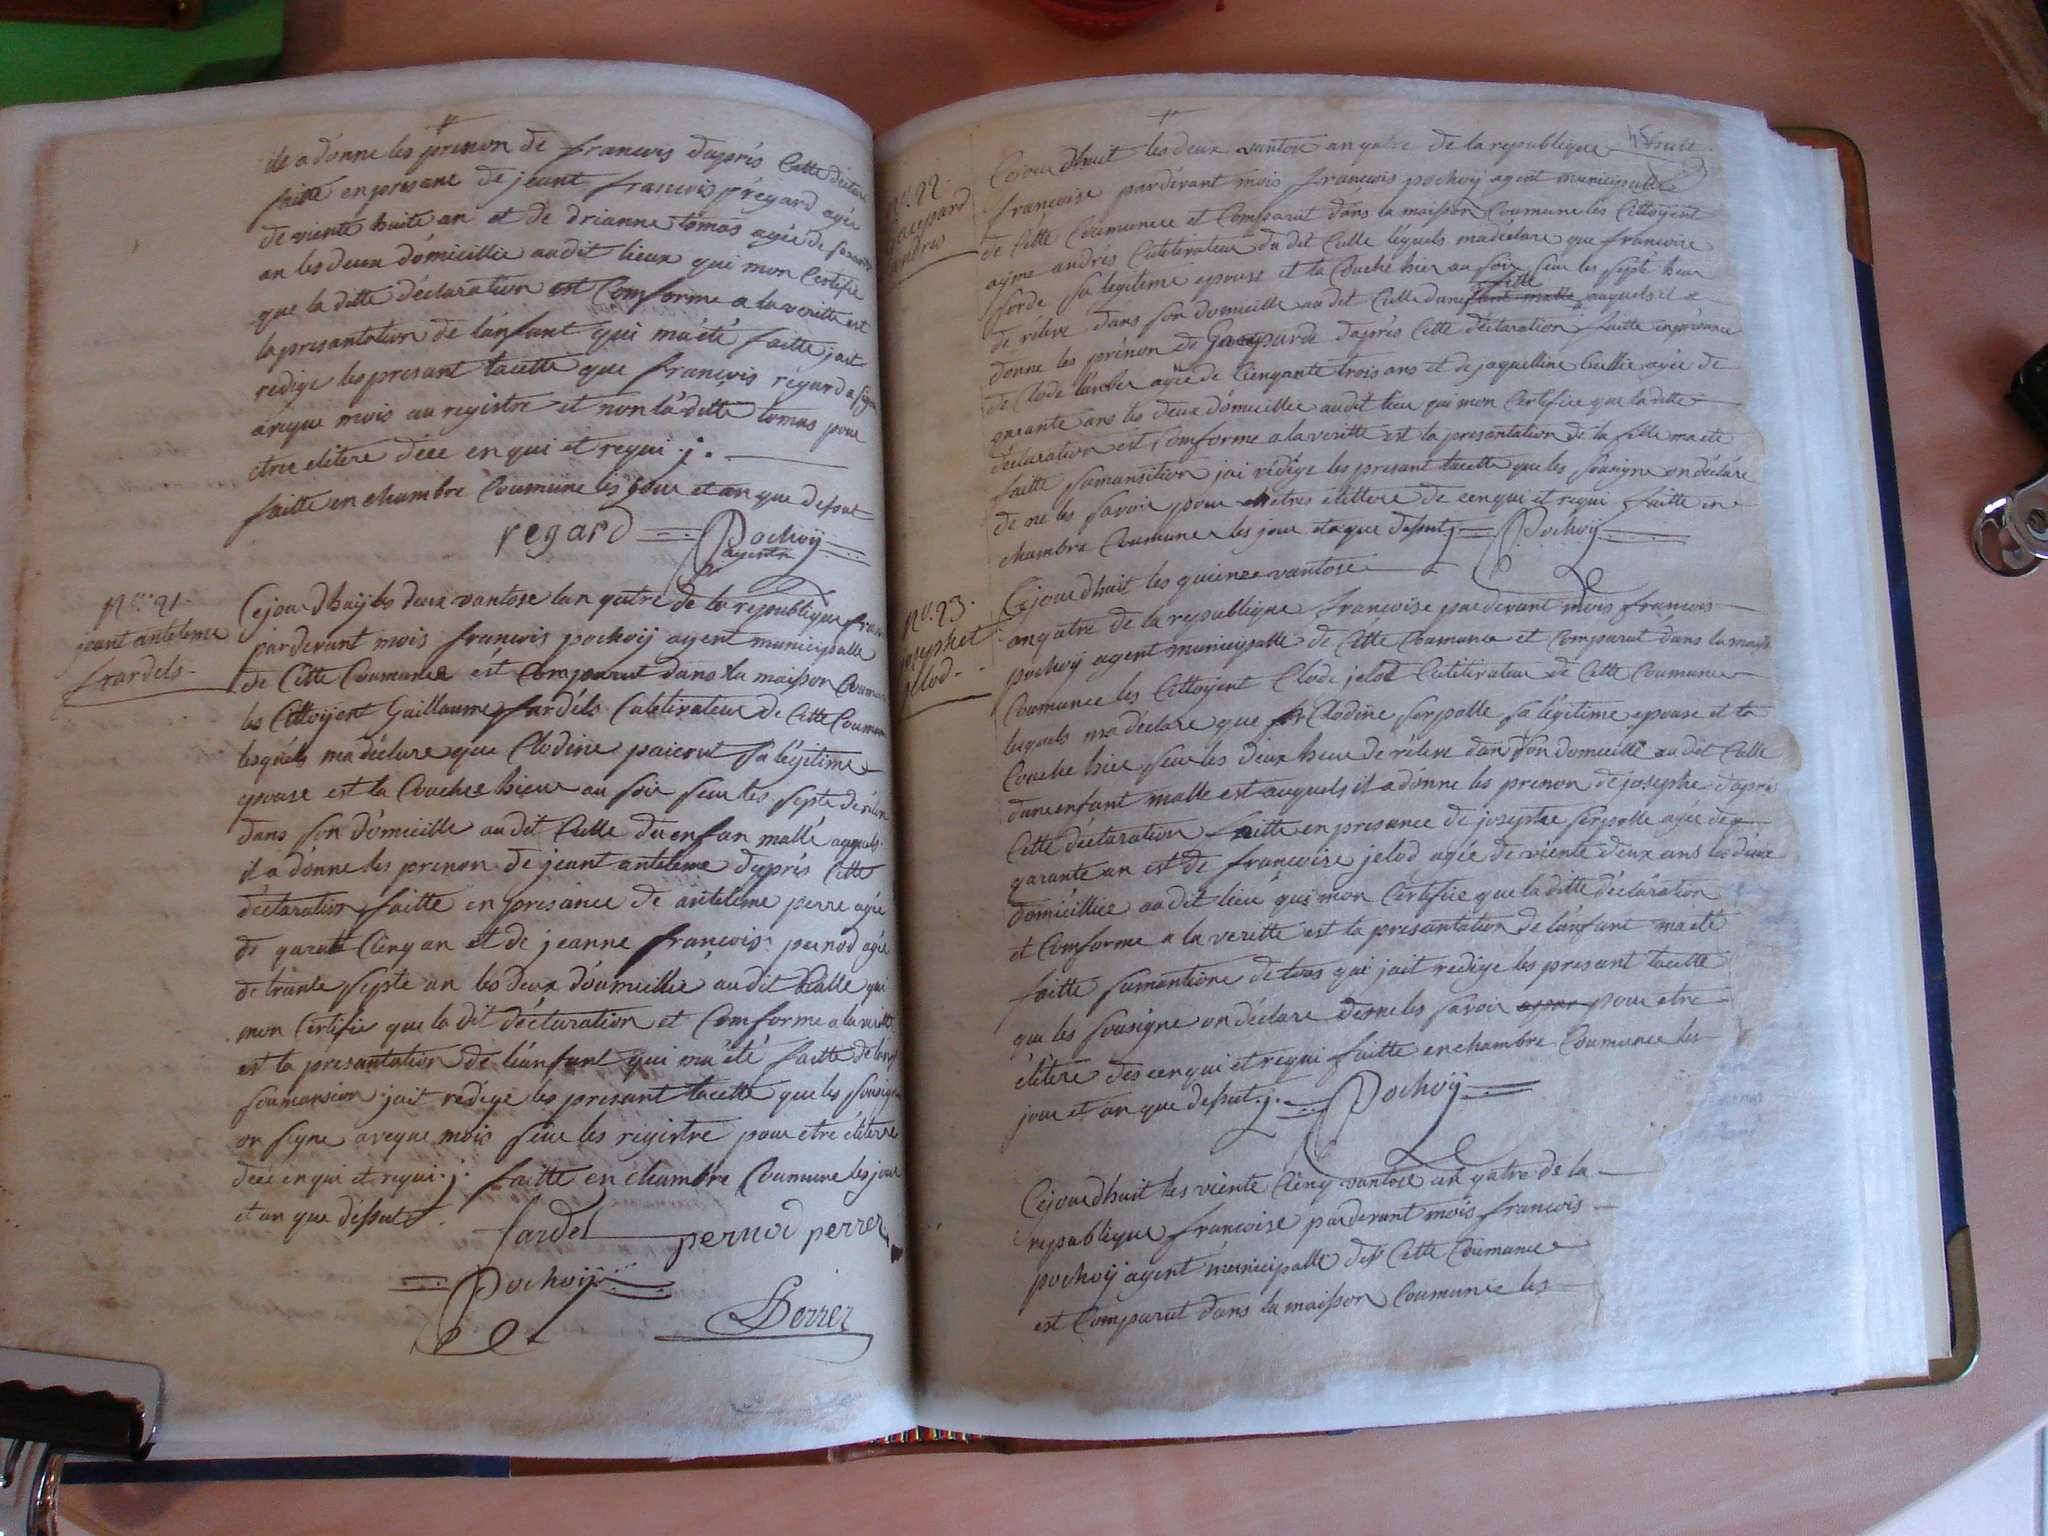 ils a donne les prenon de francois dapris Cette declara
faitte en presane de jeant francois regard agée
de viente huite an et de drianne tomas agée de
an les deux domicillie audit lieux qui mon Certifie
que la ditte déclaration est Comforme a la veritte est
la presantation de lanfant qui maété faitte jait
redige les presant tacette que francois regard a signe
aveque mois au registre et non la ditte tomas pour
etre elitere déce enqui et requi .j.
faitte en chambre Coumune les jour et an que desut
regard Pochoÿ
agent
N.° 21.
jeant anteleme
frardels
Cejourdhuÿ les deux vantose lan qatre de la republique fran
parderant mois francois pochoÿ agent municipalle
de Cette Coumunee est Comparut dans la maisson Coumune
les Cittoÿent Guillaume fardéls Cultivateur de Cette Coumune
lesquels ma déclare que Clodine paierut sa légitime
epouse est la Couchee hieur au soir seur les septe de
dans son domicille audit Culle du enfan malle aquels
il a donne les prenon de jeant anteleme dapris Cette
déclaration faitte en presance de anteleme perre agée
de qarante Cienq an et de jeanne francois pernod agée
de trante septe an les deux doumicillie audit Culle qui
mon Certifie que la dit déclaration et Comforme a la veritte
est la presantation de léanfant qui ma été faitte de
soumansion jait redige les presant tacette que les sousigne
on signe aveque mois seur les registre pour etre éliterre
déce enqui et requi .j. faitte en chambre Coumune les jour
et an que dessut
fardel pernod perrer
Pochoÿ
Perrer
N.° 22.
Gasepard
andres
Cejourdhuit les deux vantose an qatre de la republique
francoise parderant mois francois pochoÿ agent municipalle
de Cette Coumunee et Comparut dans la maisson Coumune les Cittoÿent
aÿme andrés Cultivateur du dit Culle léquels madéclare que francoise
sorde sa légitime epouse et la Couche hier au soir seur les septe heur
de réleve dans son domicille audit Culle dune fille fant malle auquels il a
donne les prénon de Gasparde dapris Cette déclaration faitte en présance
de Clode lanbes agée de Cienqante trois ans et de jaquelline Cullie agée de
qarante ans les deux domicillie audit lieu qui mon Certifiee que la ditte
declaration est Comforme a la veritte est la presantation de la fille ma eté
faitte sumansition jai redige les presant tacette que les sousigne on déclare
de ne les savoir pour etres elittere de cenqui et requi faitte en
chambre Coumune les jour et a que dessut Pochoÿ
N.° 23.
josephet
jelod
Cejourdhuit les quienze vantose
an qatre de la republique francoise parderant mois francois
pochoÿ agent municipalle de Cette Coumune et Comparut dans la maiss
Coumunee les Cittoÿent Clode jelod Cultivateur de Cette Coumune
lequels ma déclare que Clodine serpolle sa légitime epouse et la
Couche hier seur les deux heur de réleve dan son domicille audit Culle
dune enfant malle est auquels il a donne les prenon de josephe dapris
Cette déclaration faitte en presance de josephe serpolle agée de
qarante an est de francoise jelod agée de viente deux ans les deux
domicilliee audit lieu qui mon Certifie que la ditte déclaration
et Comforme a la verette est la presantation de lanfant ma eté
faitte sumantione de tous qui jait redige les presant tacette
que les sousigne on déclare dene les savoir pour etre
élitere des cenqui et requi faitte en chambre Coumunee les
jour et an que dessut .j. Pochoÿ
Cejourdhuit les viente Cienq vantose an qatre de la
republique francoise parderant mois francois
pochoÿ agent municipalle des Cette Coumunee
est Comparut dans la maisson Coumunee les